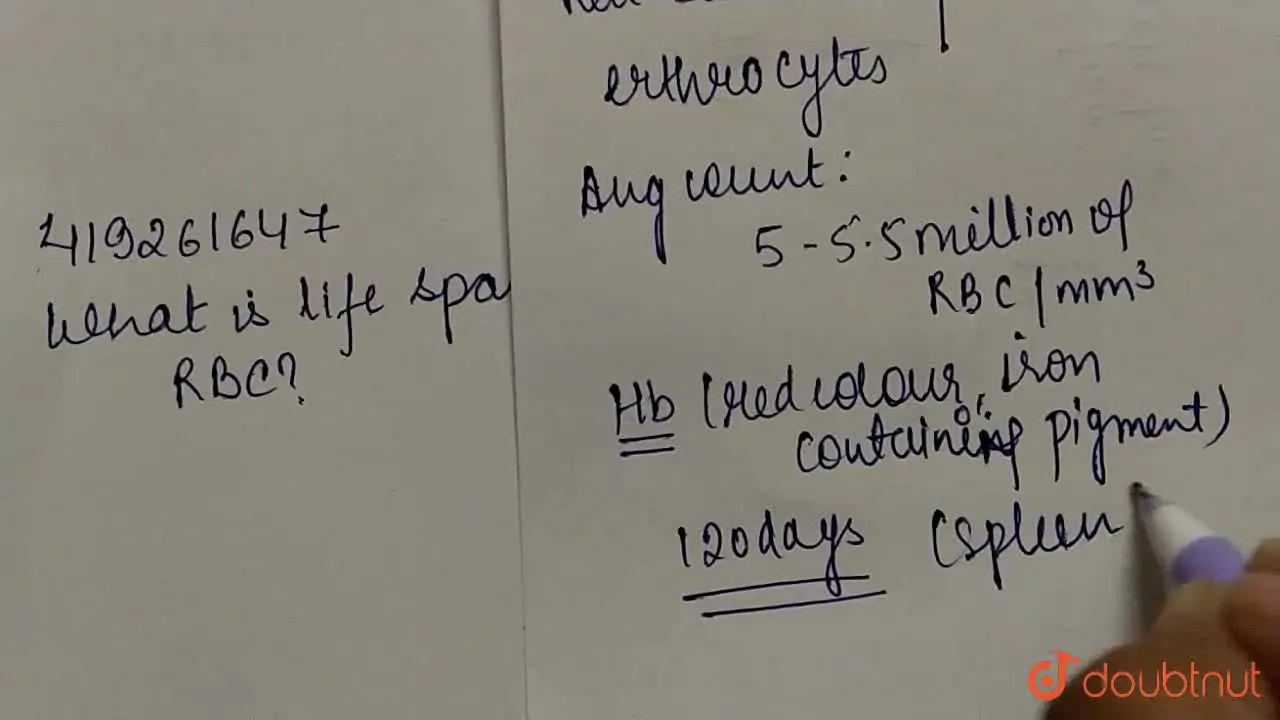 419261647
What is life spa
RBC?
erthrocytes
Aug count:
5-5.5 million of
RBC/mm³
Hb (red colour, iron
containing pigment)
120days (spleen
doubtnut